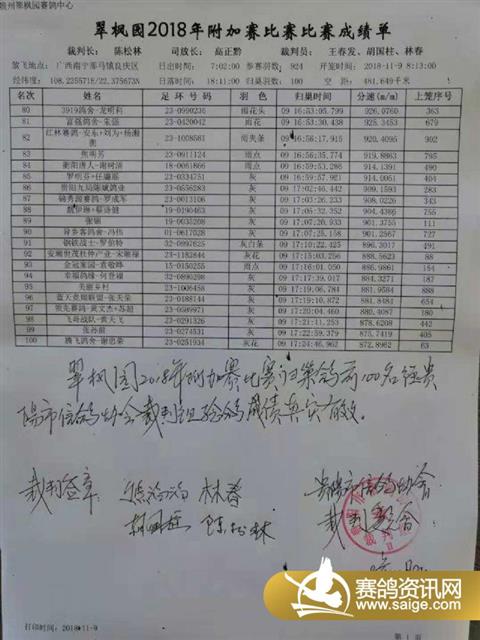 贵州翠枫园赛鸽中心
翠枫园2018年附加赛比赛比赛成绩单
裁判长: 陈松林 司放长: 高正黔 裁判员: 王春发、胡国柱、林春
放飞地点: 广西南宁那马镇良庆区 日出: 7:02:00 参赛羽数: 924 开笼时间: 2018-11-9 8:13:00
经纬度: 108.2355718/22.375673N 日落时间: 18:11:00 归巢羽数: 100 空距: 481.649千米
名次 姓名 足环号码 羽色 归巢时间 分速(m/m) 上笼序号
80 3919鸽舍-龙明利 23-0990236 雨花头 09 16:53:05.799 926.0760 363
81 富强鸽舍-朱强 23-0420042 雨花 09 16:53:30.438 925.3453 679
82 红林赛鸽-安东+刘为+杨湘衡 23-1008581 雨夹条 09 16:56:17.915 920.4095 502
83 衡明芳 23-0911124 雨点 09 16:56:35.774 919.8863 795
84 衡阳唐人-谢树清 23-0186616 雨点 09 16:59:53.286 914.1391 490
85 罗明芬+任璐瑶 23-0334751 灰 09 16:59:57.921 914.0051 404
86 贵阳九局陈斌鸽业 23-0556283 灰 09 17:02:46.442 909.1593 283
87 锦秀源赛鸽-罗成军 23-0613106 灰 09 17:03:26.233 908.0226 343
88 19-0190463 灰 09 17:05:32.352 904.4388 755
89 张镭 19-0635268 灰 09 17:07:08.551 901.7240 111
90 异乡客鸽舍-冯伟 01-0617028 灰 09 17:07:25.158 901.2567 727
91 钢铁战士-罗勇特 32-0997625 灰白条 09 17:10:22.425 896.3017 491
92 安顺世茂杜仲产业-宋顺禄 23-1182844 灰 09 17:15:10.240 888.3726 88
93 金冠家园-袁敬晔 15-0150255 雨点 09 17:16:01.050 886.9861 154
94 幸福鸽缘-何登禄 23-0183640 灰 09 17:17:39.017 884.3247 187
95 美丽乡村 23-0123558 灰 09 17:19:06.784 881.9584 888
96 蓝天竞翔联盟-张天荣 23-0188144 灰 09 17:19:10.872 881.8484 654
97 领先赛鸽-黄文杰+苏超 23-0589971 灰 09 17:20:04.460 880.4087 307
98 飞哥战队-黄天飞 23-0291326 灰 09 17:21:11.253 878.6208 442
99 张孙韶 23-0274531 灰 09 17:22:59.379 875.7419 405
100 腾飞鸽舍-谢忠荣 23-0251924 灰花 09 17:24:46.962 872.8962 63
翠枫园2018年附加赛比赛归巢鸽前100名经贵
阳市信鸽协会裁判组验鸽成绩真实有效。
裁判签章: 林春 贵阳市信鸽协会
陈松林 裁判委员会
打印时间 2018-11-9 第 1 页
赛鸽资讯网
www.saige.com